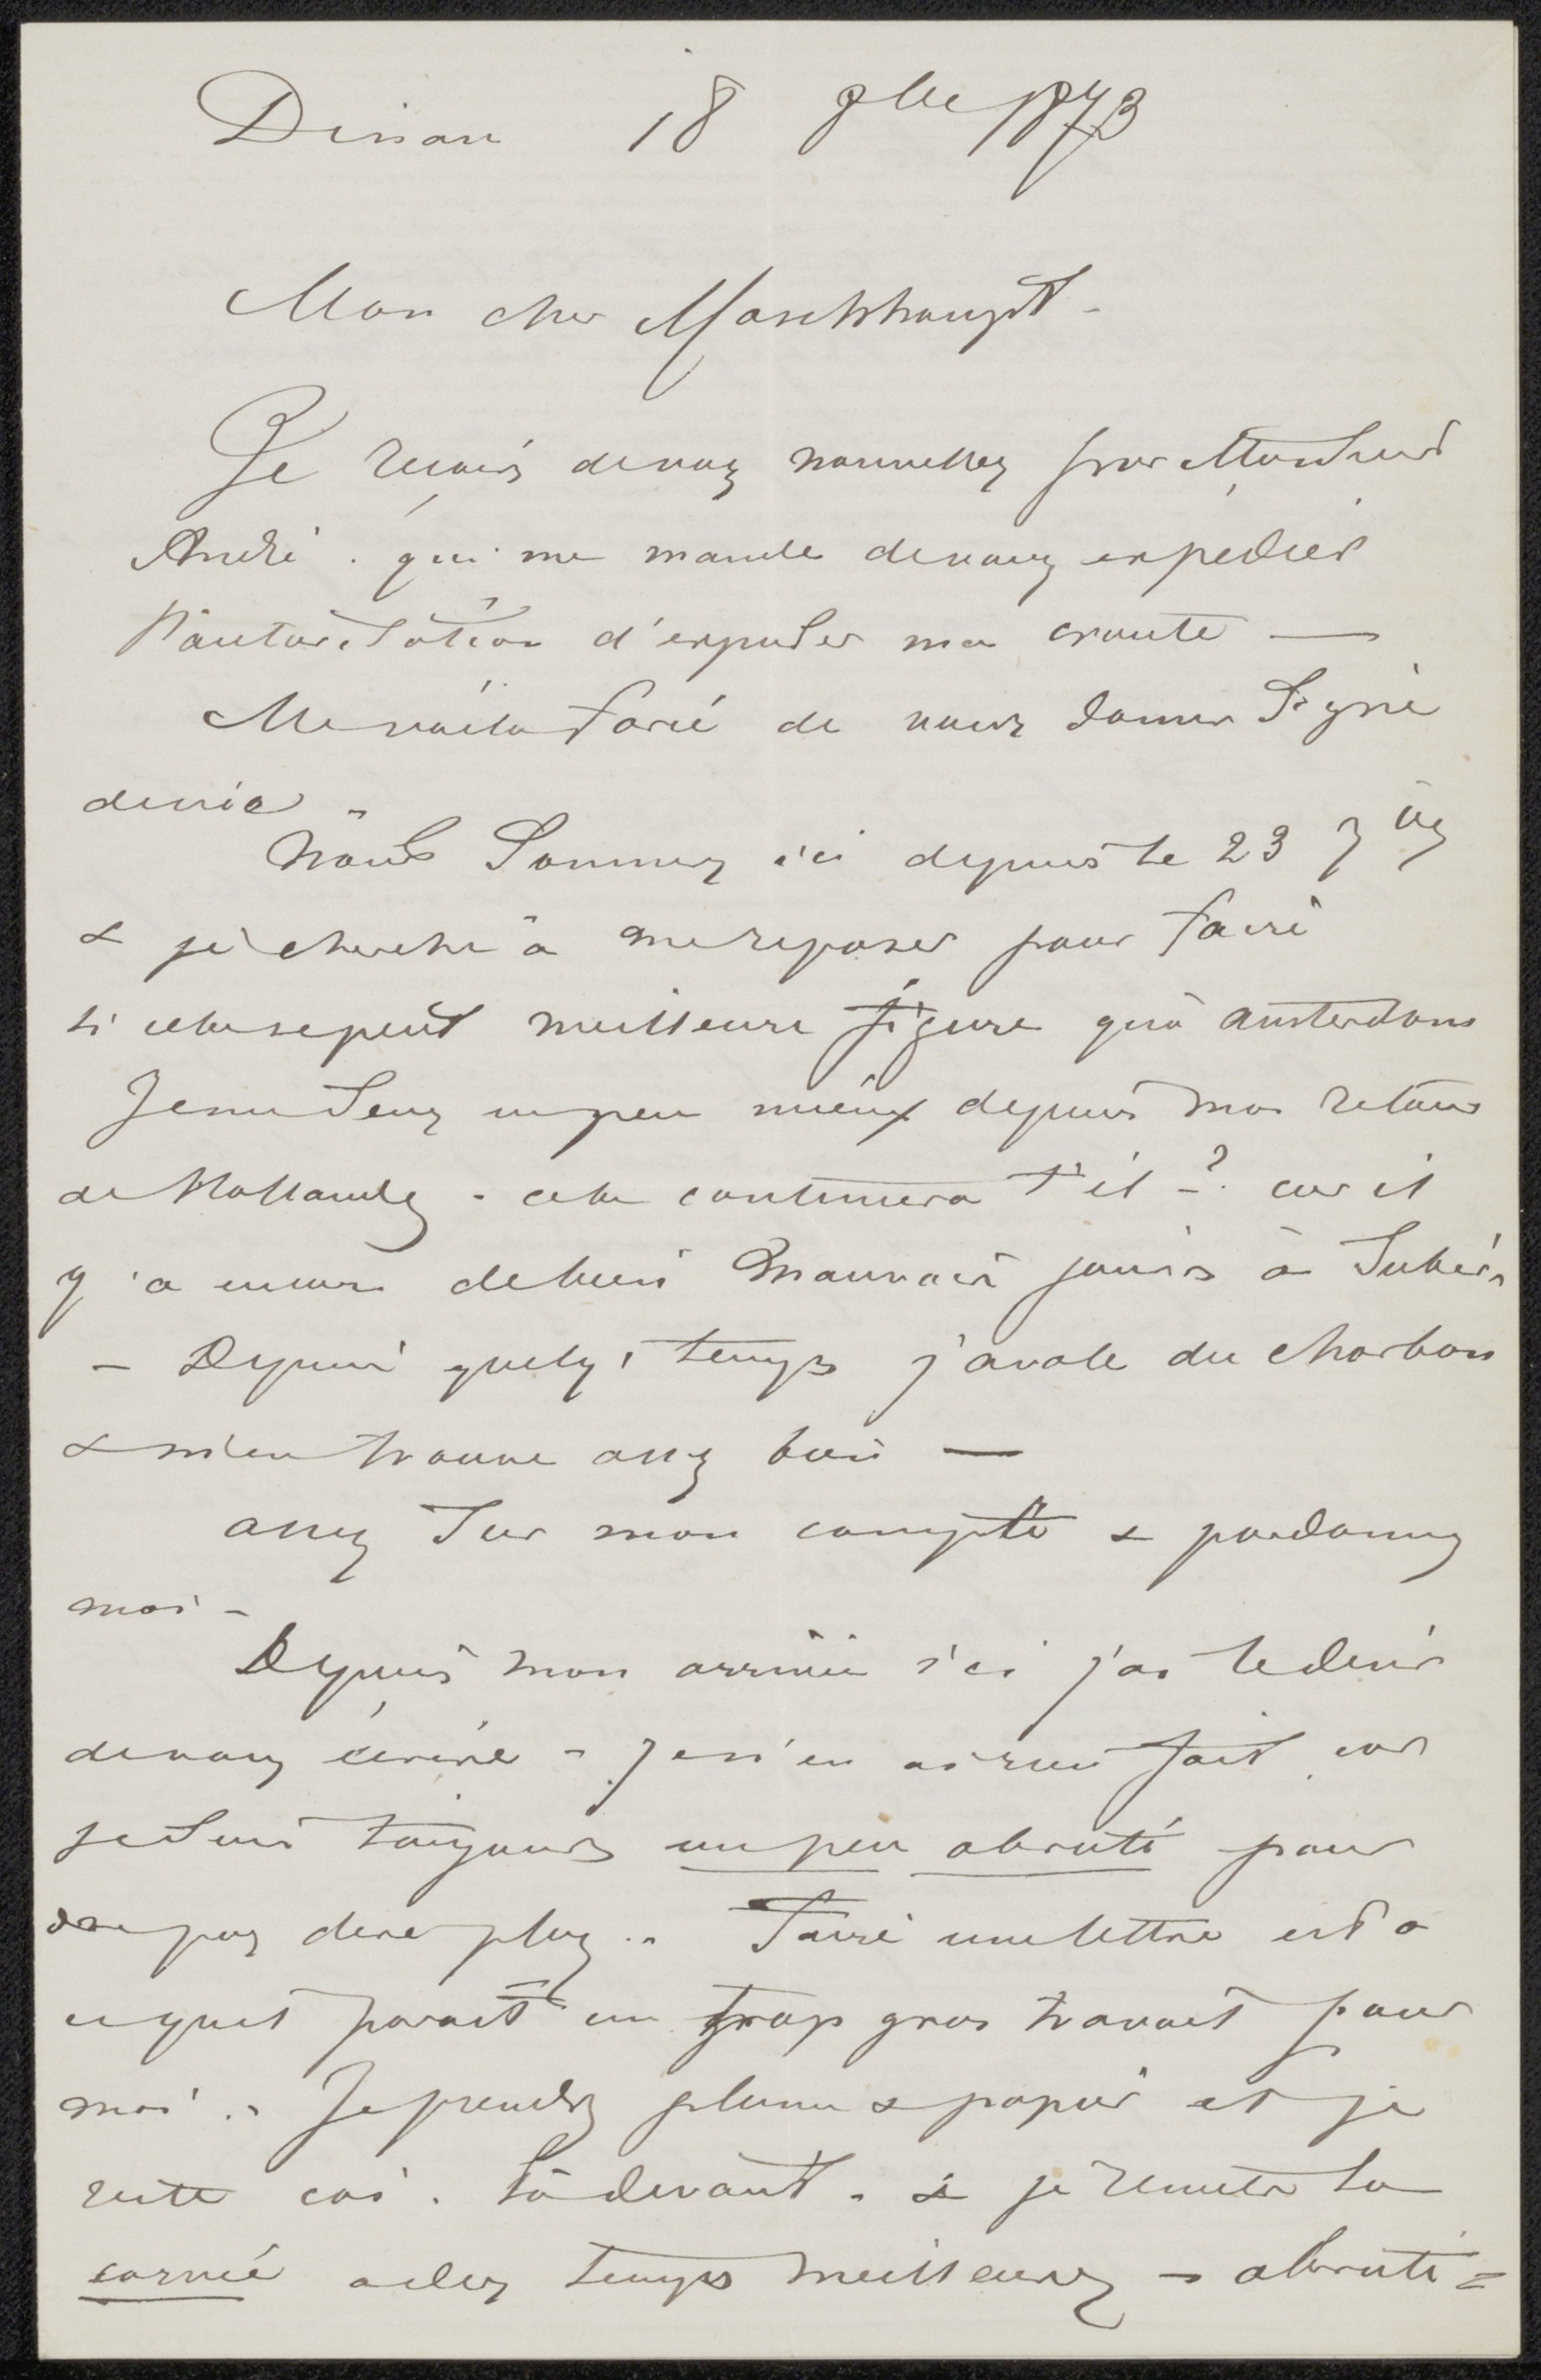 Dinan 18 8bre 1873
Mon cher Marckhaupt -
Je reçois de vos nouvelles par Monsieur
André . qui me mande de vous expedier
l'autorisation d'exposer ma croute —
Me voila forcé de vous donner signe
de vie -
Nous sommes ici depuis le 23 7
& je cherche à me reposer pour faire
si cela se peut meilleure figure qu'à amsterdam
Je me sens un peu mieux depuis mon retour
de Hollande - cela continuera t'il - ? car il
y a encore de bien mauvais jours à subir
- Depuis quelq. temps j'avale du charbon
& m'en trouve assez bien —
assez sur mon compte & pardonnez
moi -
Depuis mon arrivée ici j'ai le desir
de vous écrire - je n'en ai rien fait car
je suis toujours un peu abruti pour
ne pas dire plus .. Faire une lettre est à
ce qu'il parait un trop gros travail pour
moi .. Je prends plume & papier et je
reste coi . là devant . & je remets la
corvée à des temps meilleurs - abruti =